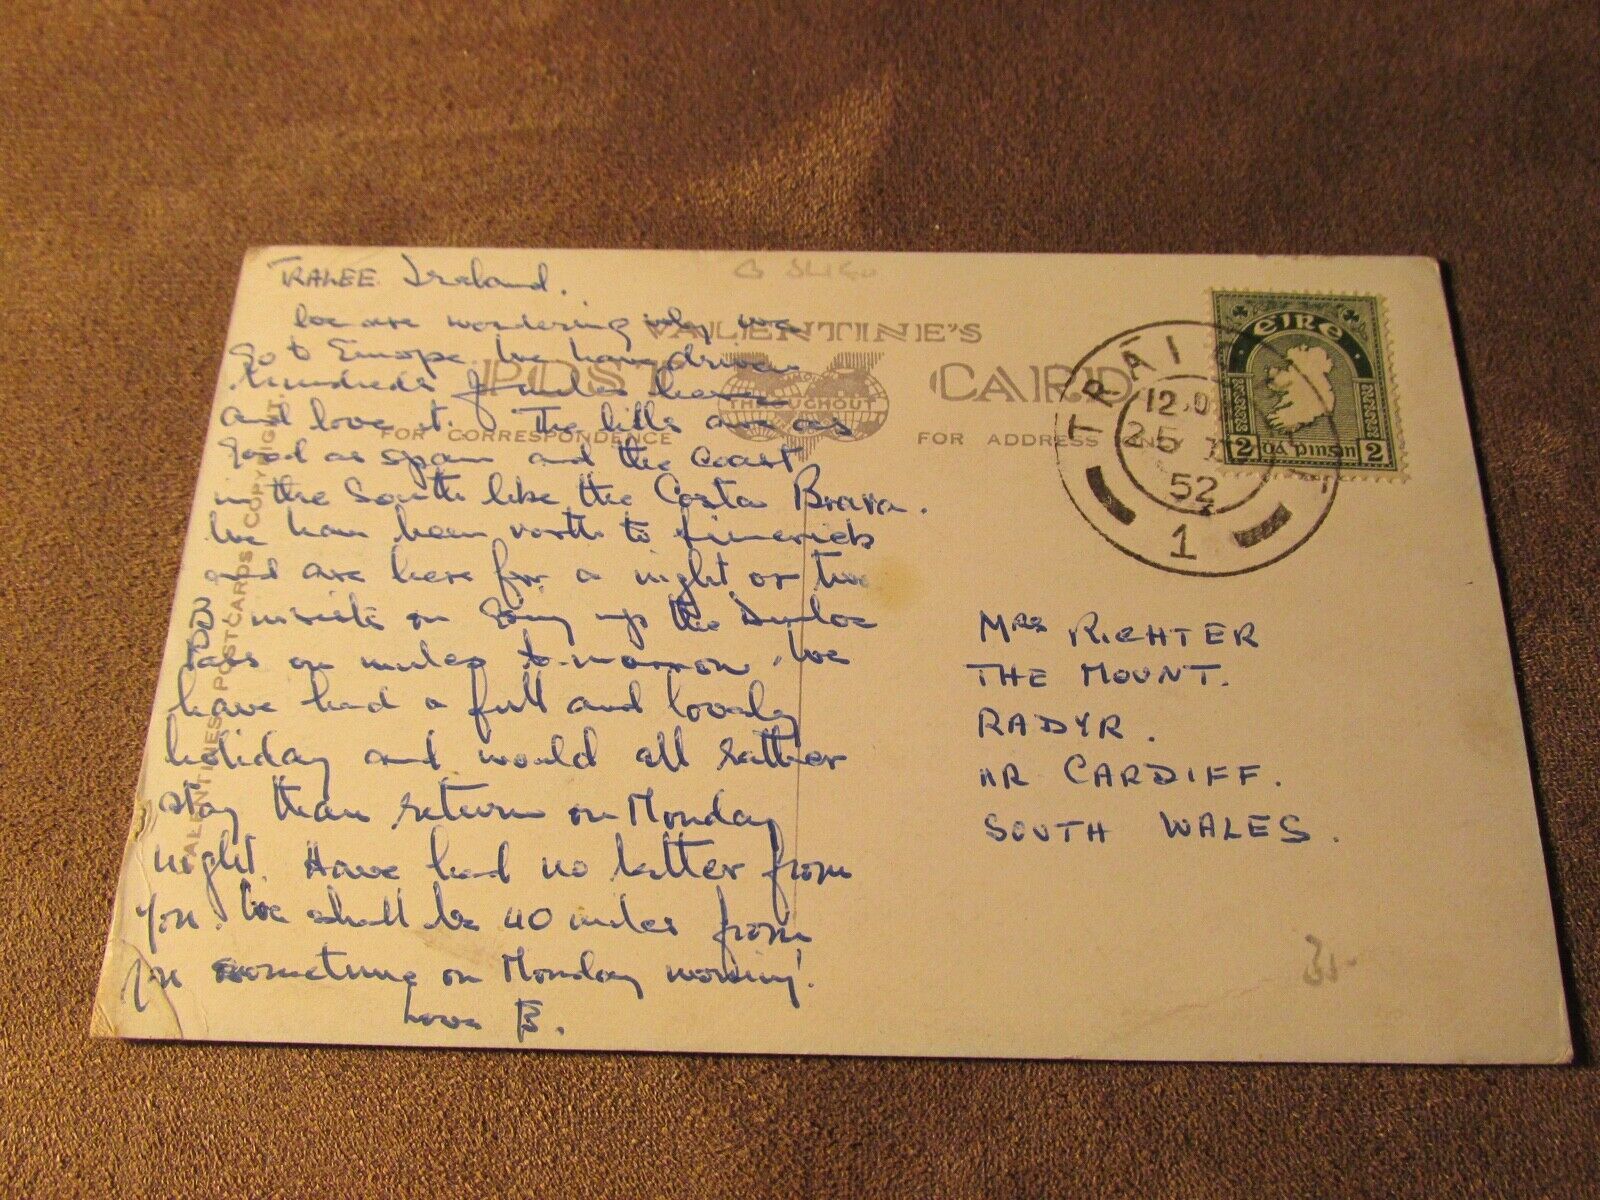 TRALEE Ireland.
We are wondering why we
go to Europe. We have driven
hundreds of miles here
and love it. The hills are as
good as Spain and the coast
in the South like the Costa Brava.
We have been north to Limerick
and are here for a night or two
insists on going up the Dunloe
on mules to-morrow. We
have had a full and lovely
holiday and would all rather
stay than return on Monday
night. Have had no letter from
you. We shall be 40 miles from
you sometime on Monday morning!
Love B.
SLIGO
VALENTINE'S
POST CARD
THROUGHOUT
FOR CORRESPONDENCE
FOR ADDRESS ONLY
VALENTINES POSTCARDS COPYRIGHT.
TRÁIG
12
25
52
1
éire
2 dá pinsin 2
MRS RICHTER
THE MOUNT.
RADYR.
NR CARDIFF.
SOUTH WALES.